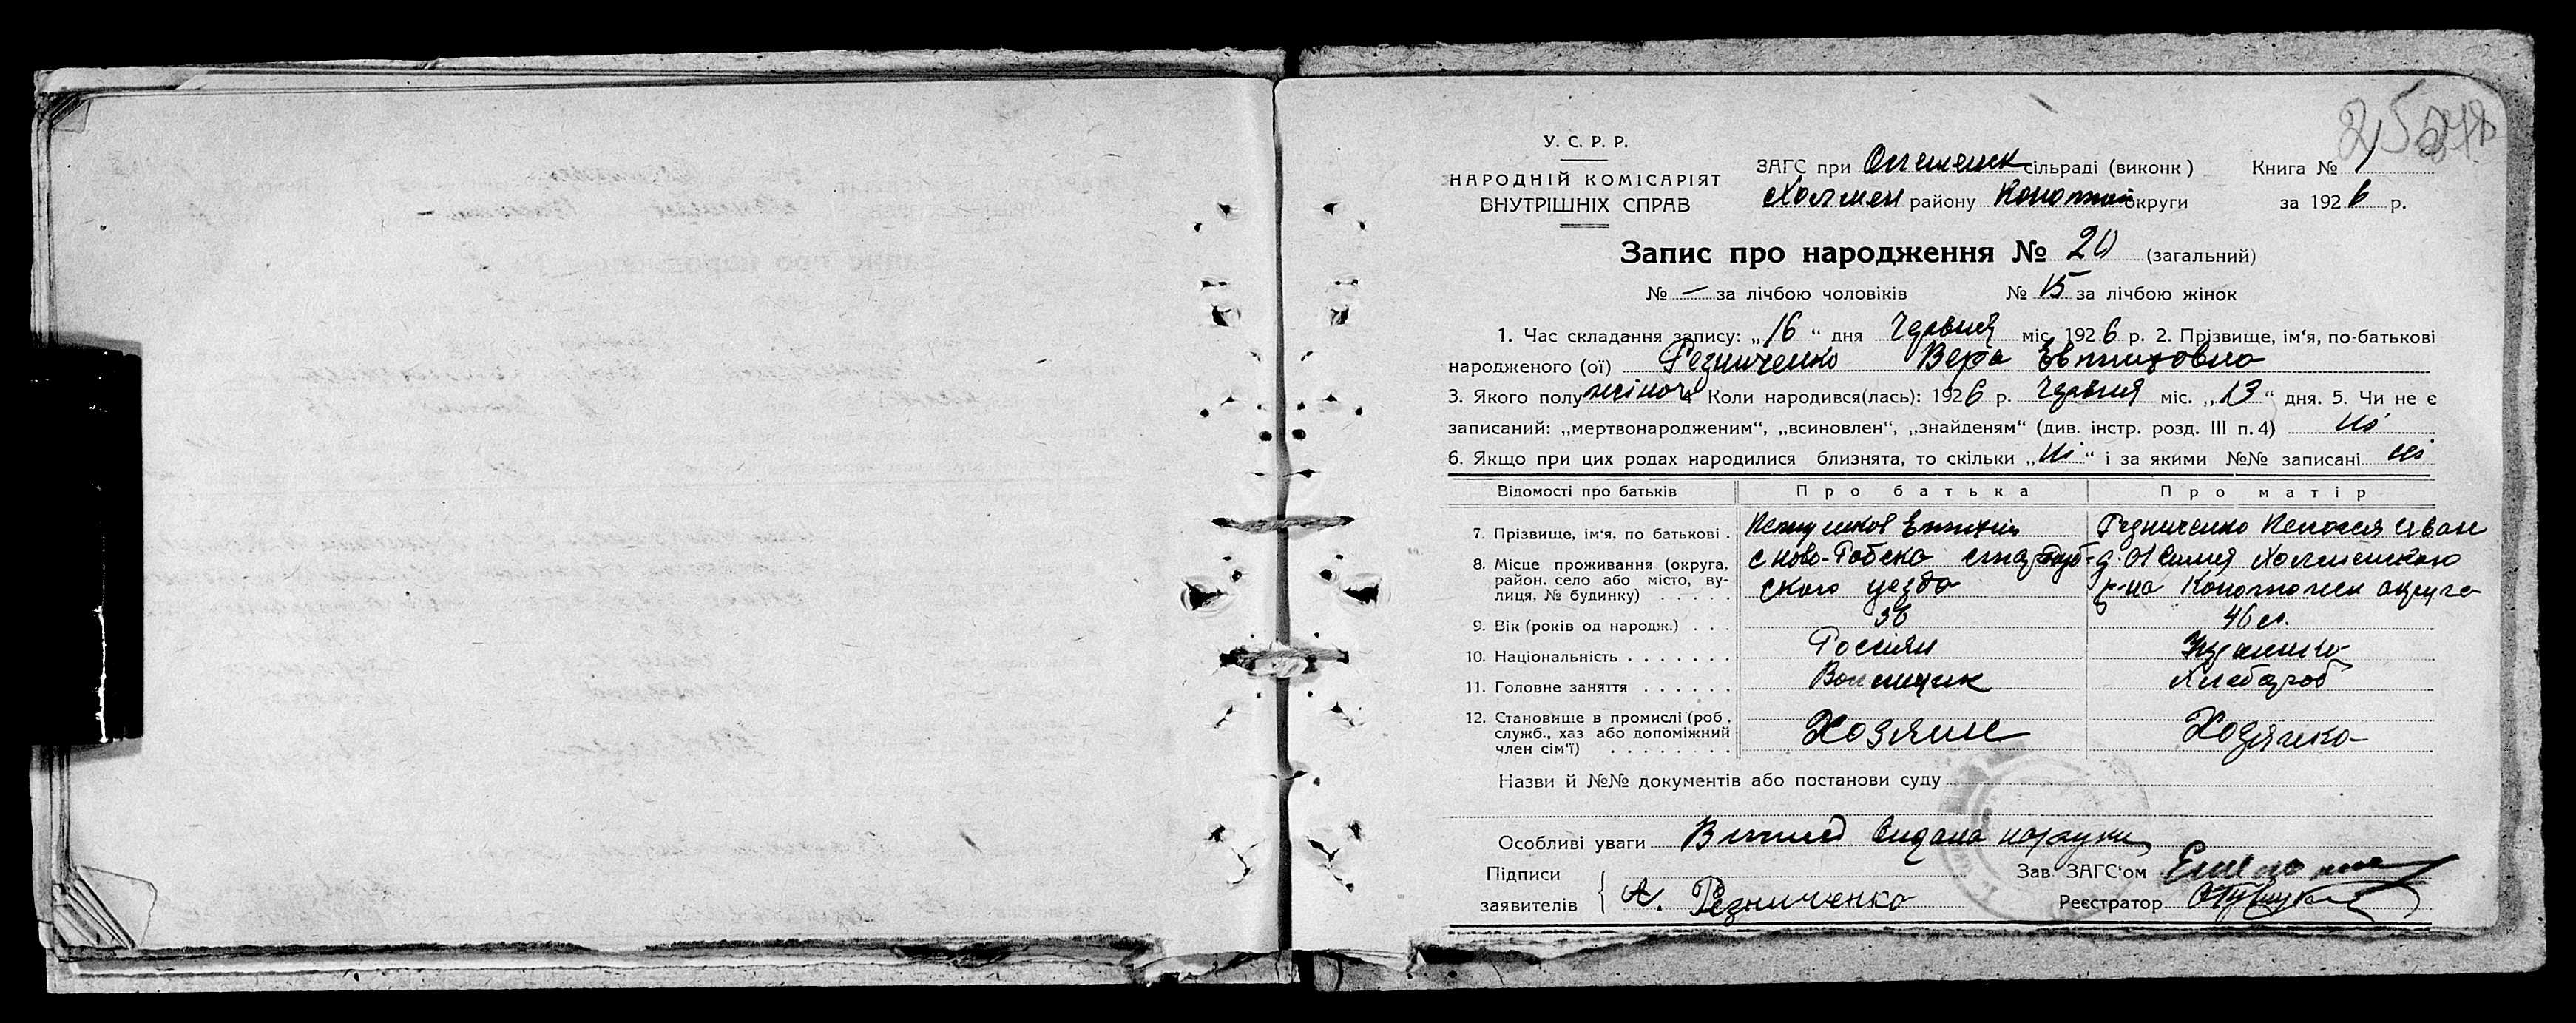 У. С. Р. Р.
НАРОДНІЙ КОМІСАРІЯТ
ВНУТРІШНІХ СПРАВ
ЗАГС при сільраді (виконк)
Холмен району Коноток округи
Книга № 1
за 1926 р.
Запис про народження № 20 (загальний)
№ — за лічбою чоловіків № 15 за лічбою жінок
1. Час складання запису: „16“ дня Червня міс. 1926 р. 2. Прізвище, ім‘я, по-батькові
народженого (ої) Резниченко Вера
3. Якого полу жіноч 4 Коли народився(лась): 1926 р. Червня міс. „13“ дня. 5. Чи не є
записаний: „мертвонародженим“, „всиновлен“, „знайденям“ (див. інстр. розд. III п. 4) Ні
6. Якщо при цих родах народилися близнята, то скільки „Ні“ і за якими №№ записані ні
Відомості про батьків Про батька Про матір
7. Прізвище, ім‘я, по батькові . Резниченко Иван
8. Місце проживання (округа, район, село або місто, вулиця, № будинку) . . . . . с Ново-Робско Стародубского уезда Холменского р-на Конотопск округа
9. Вік (років од народж.) . . . 36 46 л.
10. Національність . . . . . . . Росіян
11. Головне заняття . . . . . . Хлебороб
12. Становище в промислі (роб., служб., хаз або допоміжний член сім‘ї) . . . . . . . . Хозяин Хозяйка
Назви й №№ документів або постанови суду
Особливі уваги видана на руки
Підписи
заявителів А. Резниченко
Зав ЗАГС‘ом
Реєстратор